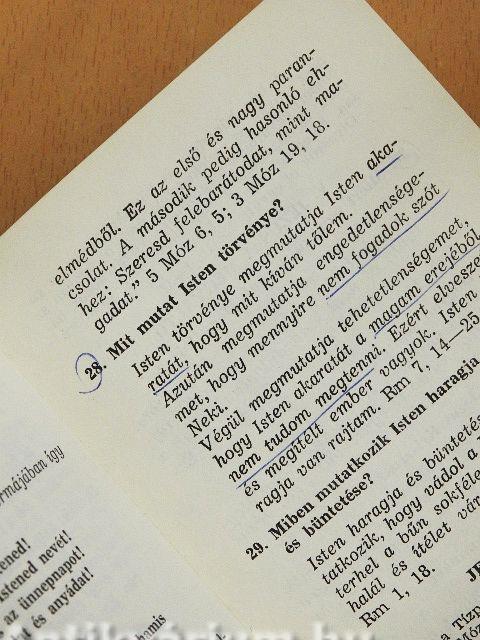 elmédből. Ez az első és nagy paran-
csolat. A második pedig hasonló eh-
hez: Szeresd felebarátodat, mint ma-
gadat." 5 Móz 6, 5; 3 Móz 19, 18.
28. Mit mutat Isten törvénye?
Isten törvénye megmutatja Isten aka-
ratát, hogy mit kíván tőlem.
Azután megmutatja engedetlensége-
met, hogy mennyire nem fogadok szót
Neki.
Végül megmutatja tehetetlenségemet,
hogy Isten akaratát a magam erejéből
nem tudom megtenni. Ezért elvesze
és megítélt ember vagyok. Isten
ragja van rajtam. Rm 7, 14—25
29. Miben mutatkozik Isten haragja
és büntetése?
Isten haragja és büntetés
tatkozik, hogy vádol a
terhel a bűn sokféle
halál és ítélet vár
Rm 1, 18.
JE
rmájában így
ened!
stened nevét!
az ünnepnapot!
at és anyádat!